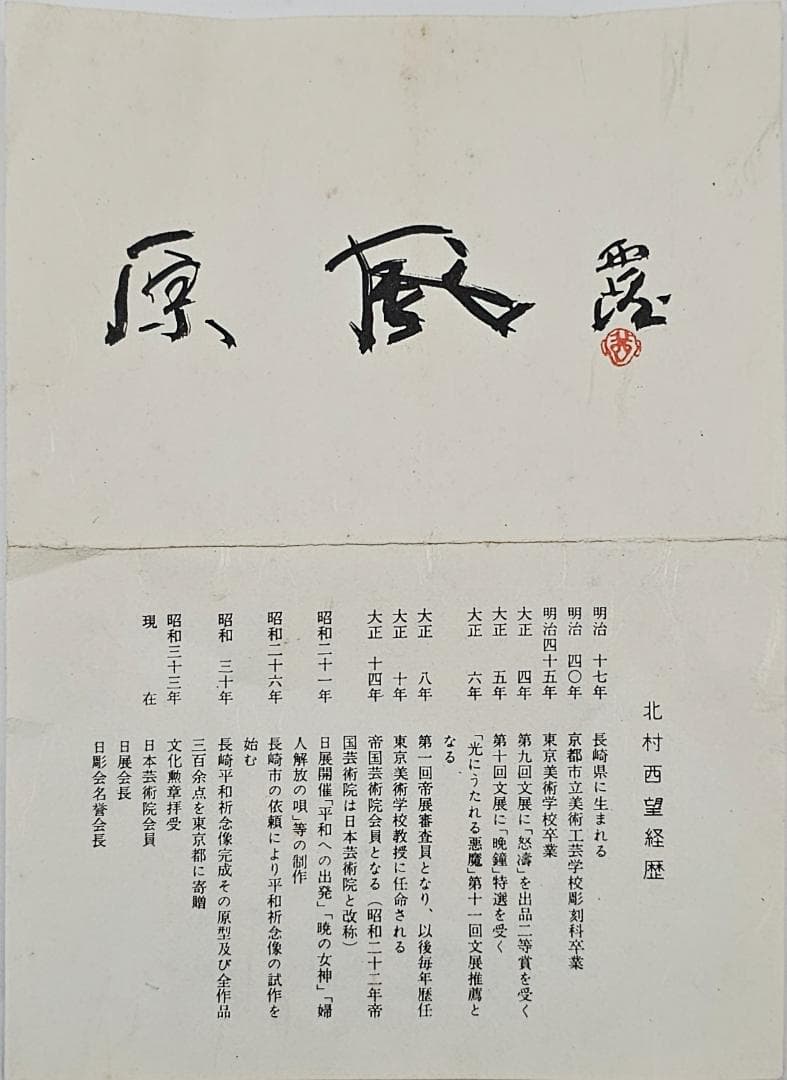 原風
西望
北村西望経歴
明治 十七年 長崎県に生まれる
明治 四〇年 京都市立美術工芸学校彫刻科卒業
明治四十五年 東京美術学校卒業
大正 四年 第九回文展に「怒濤」を出品二等賞を受く
大正 五年 第十回文展に「晩鐘」特選を受く
大正 六年 「光にうたれる悪魔」第十一回文展推薦と
なる
大正 八年 第一回帝展審査員となり、以後毎年歴任
大正 十年 東京美術学校教授に任命される
大正 十四年 帝国芸術院会員となる（昭和二十二年帝
国芸術院は日本芸術院と改称）
昭和二十一年 日展開催「平和への出発」「暁の女神」「婦
人解放の唄」等の制作
昭和二十六年 長崎市の依頼により平和祈念像の試作を
始む
昭和 三十年 長崎平和祈念像完成その原型及び全作品
三百余点を東京都に寄贈
昭和三十三年 文化勲章拝受
現 在 日本芸術院会員
日展会長
日彫会名誉会長